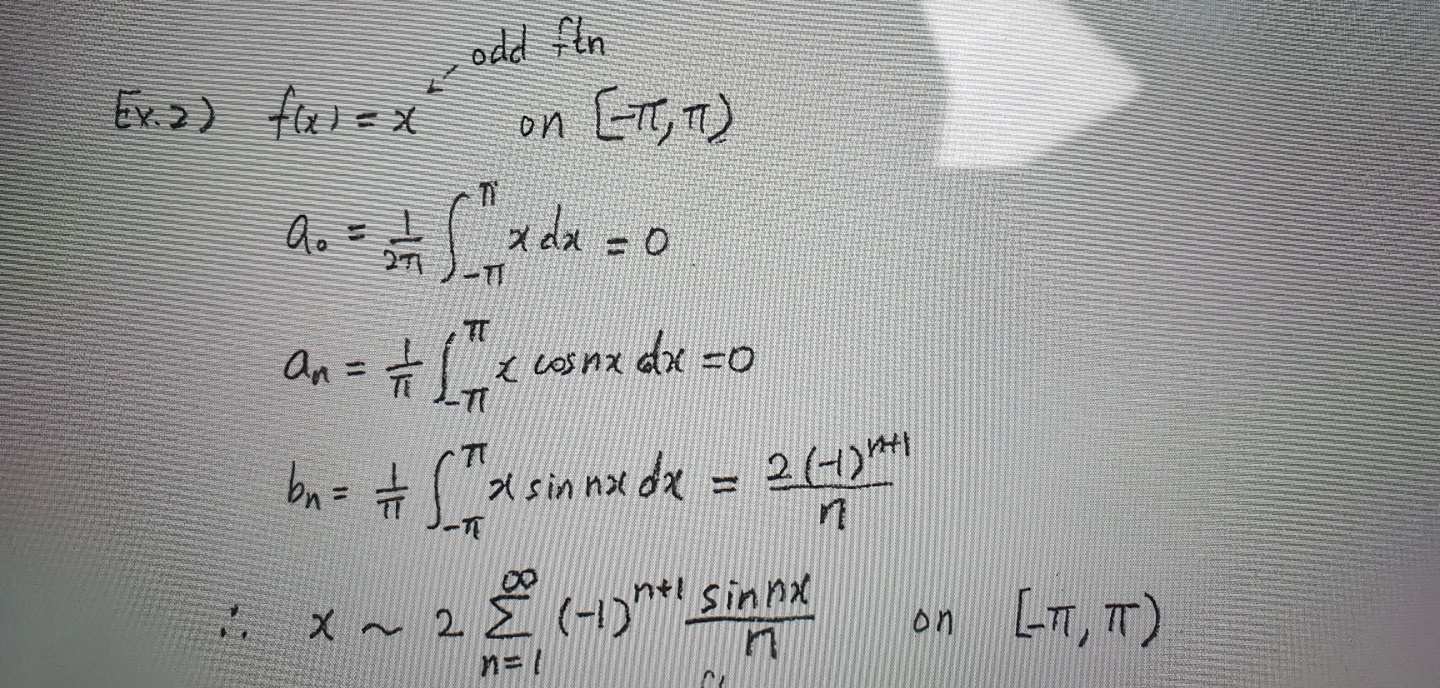 odd ftn
Ex.2) f(x) = x on [-π, π)
a₀ = 1/2π ∫_{-π}^{π} x dx = 0
aₙ = 1/π ∫_{-π}^{π} x cos nx dx = 0
bₙ = 1/π ∫_{-π}^{π} x sin nx dx = 2(-1)^{n+1}/n
∴ x ~ 2 ∑_{n=1}^{∞} (-1)^{n+1} sin nx/n on [-π, π)